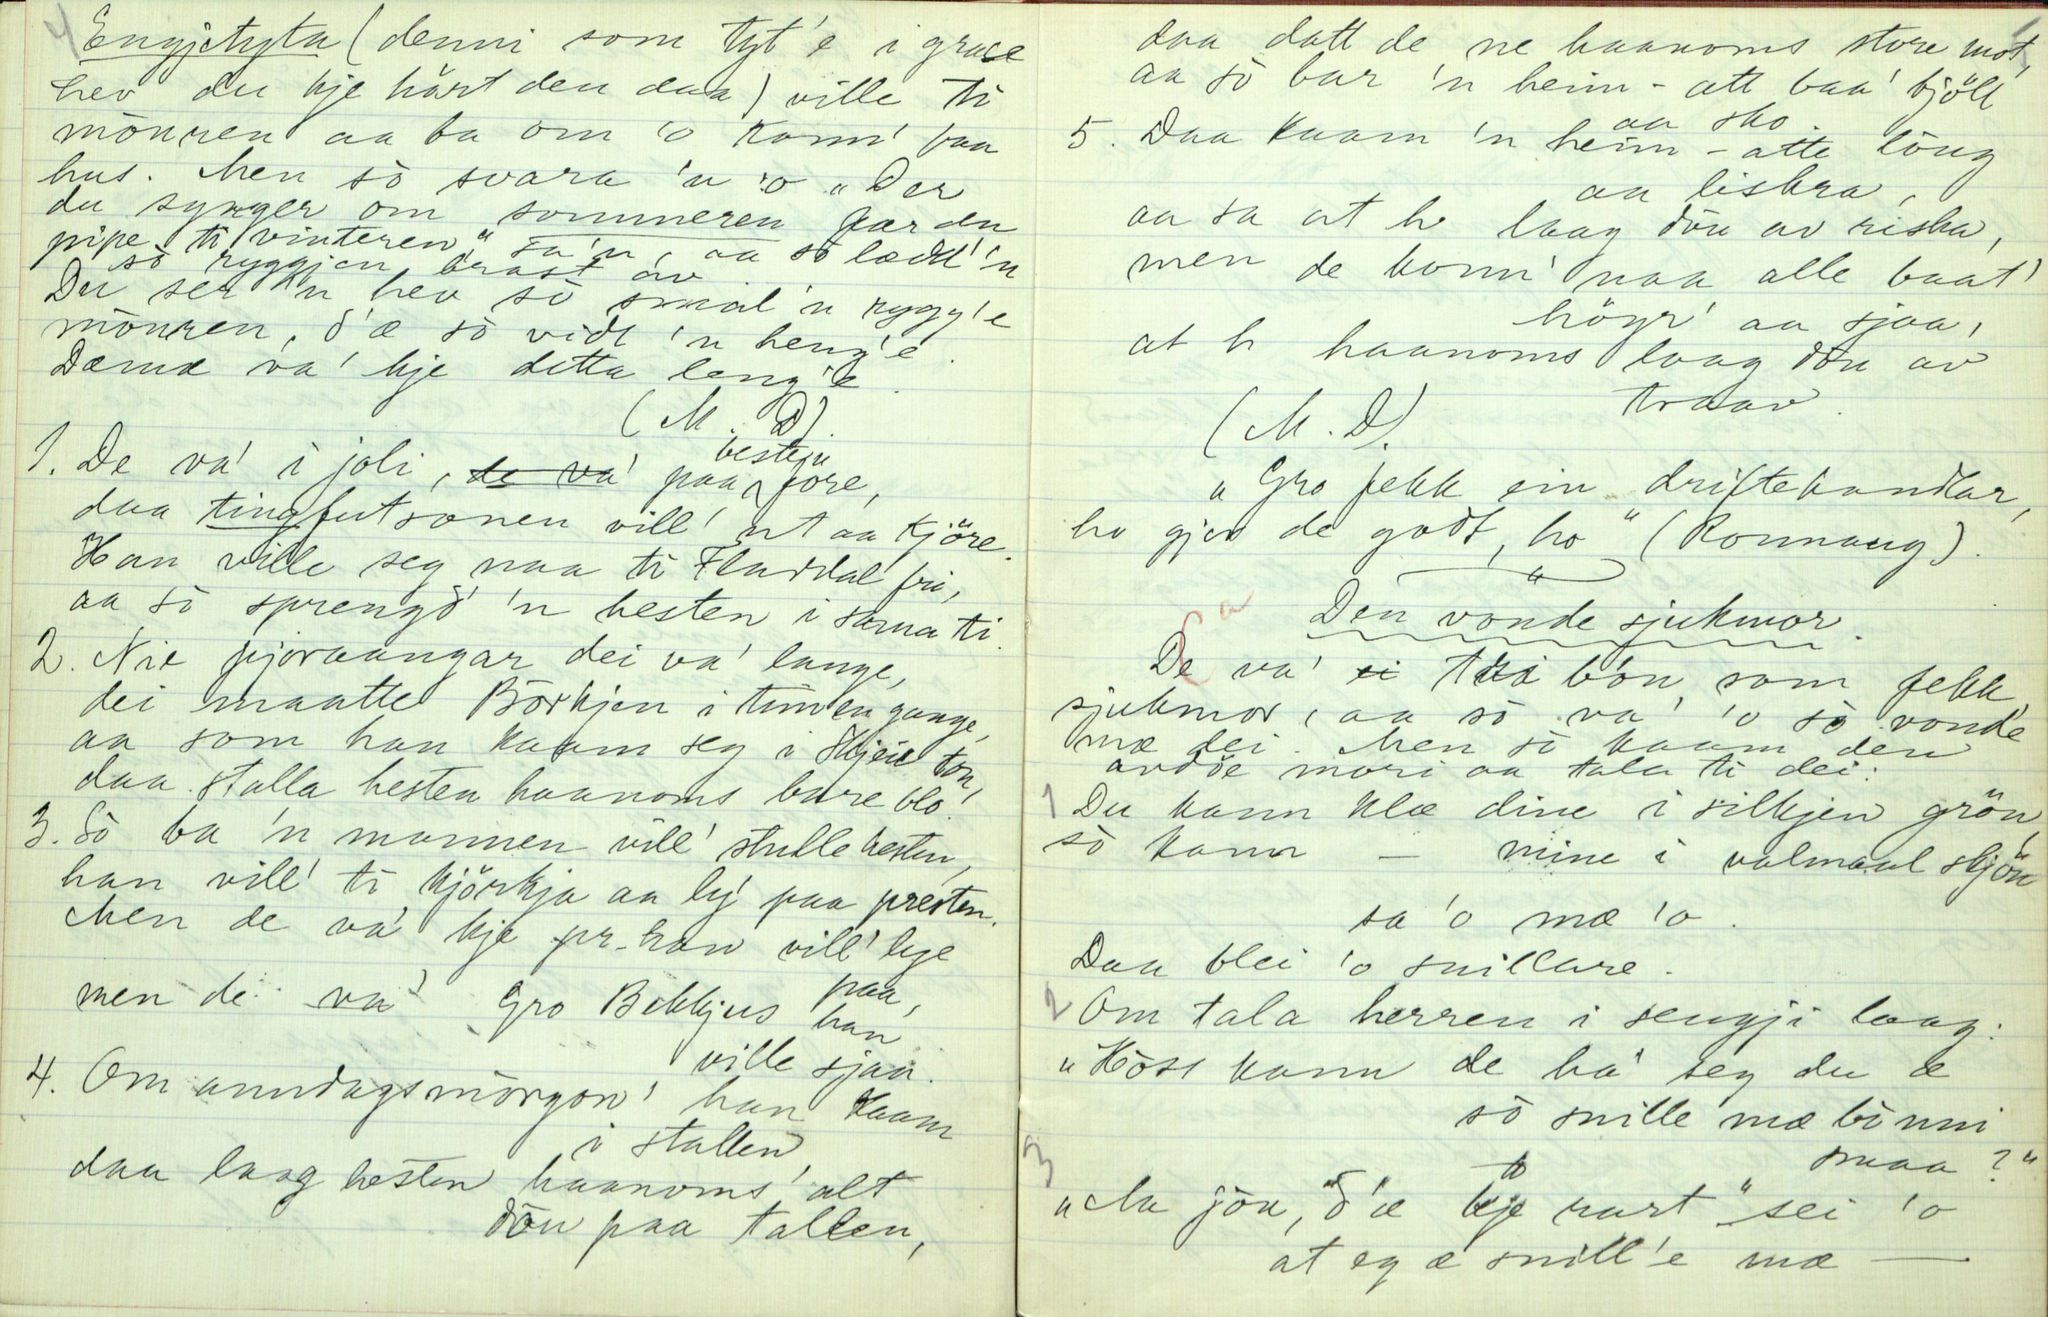 Engjetyta (denni som tyt'e i grase
hev du kje hört den daa) ville ti
mòuren aa ba om 'o komm' paa
hus. Men sò svara 'n 'o "Der
du synger om sommeren faar du
pipe ti vinteren", sa'n, aa sò lædd' 'n
sò ryggjen brast av
Du ser 'n hev sò smal 'n rygg'e
mòuren, d'æ sò vidt 'n heng'e.
Dæmæ va' kje detta leng'e.
(M. D).
1. De va' i joli, de va' paa besteju fore,
daa tingfutsonen vill' ut aa kjöre.
Han ville seg naa ti Fladdal fri,
aa sò sprengd' 'n hesten i sama ti.
2. Nie fjoraangar dei va' lange,
dei maatte Börkjen i timen gange,
aa som han kaam seg i Skjeie ton,
daa stalla hesten haanoms bare blo.
3. Sò ba 'n mannen vill' stulle hesten,
han vill' ti kjörkja aa ly' paa presten.
Men de va' kje pr- han vill' lye
paa,
men de va' Gro Bekkjus han
ville sjaa.
4. Om anndagsmòrgon' han kaam
i stallen
daa laag hesten haanoms' alt
dòu paa tallen,
daa datt de ne haanoms store mot,
aa sò bar 'n heim-att baa' bjöll
aa sko.
5. Daa kaam 'n heim-atte lòug
aa liskra,
aa sa at ho laag dòu av riska,
men de konn' naa alle baat'
höyr' aa sjaa,
at ho haanoms laag dòu av
traav.
(M. D).
"Gro fekk ein driftekandlar,
ho gjer de godt, ho" (Ronnaug).
Den vonde sjukmor.
De va' ei tvò bòn som fekk
sjukmor, aa sò va' 'o sò vonde
mæ dei. Men sò kaam den
avdöe mori aa tala ti dei:
1 Du kann klæ dine i silkjen grön,
sò kann — mine i valmaal skjön
sa 'o mæ 'o.
Daa blei 'o snillare.
2 Om tala herren i sengji laag:
"Hòss kann de ha' seg du æ
sò snille mæ bònni
smaa?"
3 "Aa jòu, d'æ kje rart" sei 'o
at eg æ snill'e mæ —